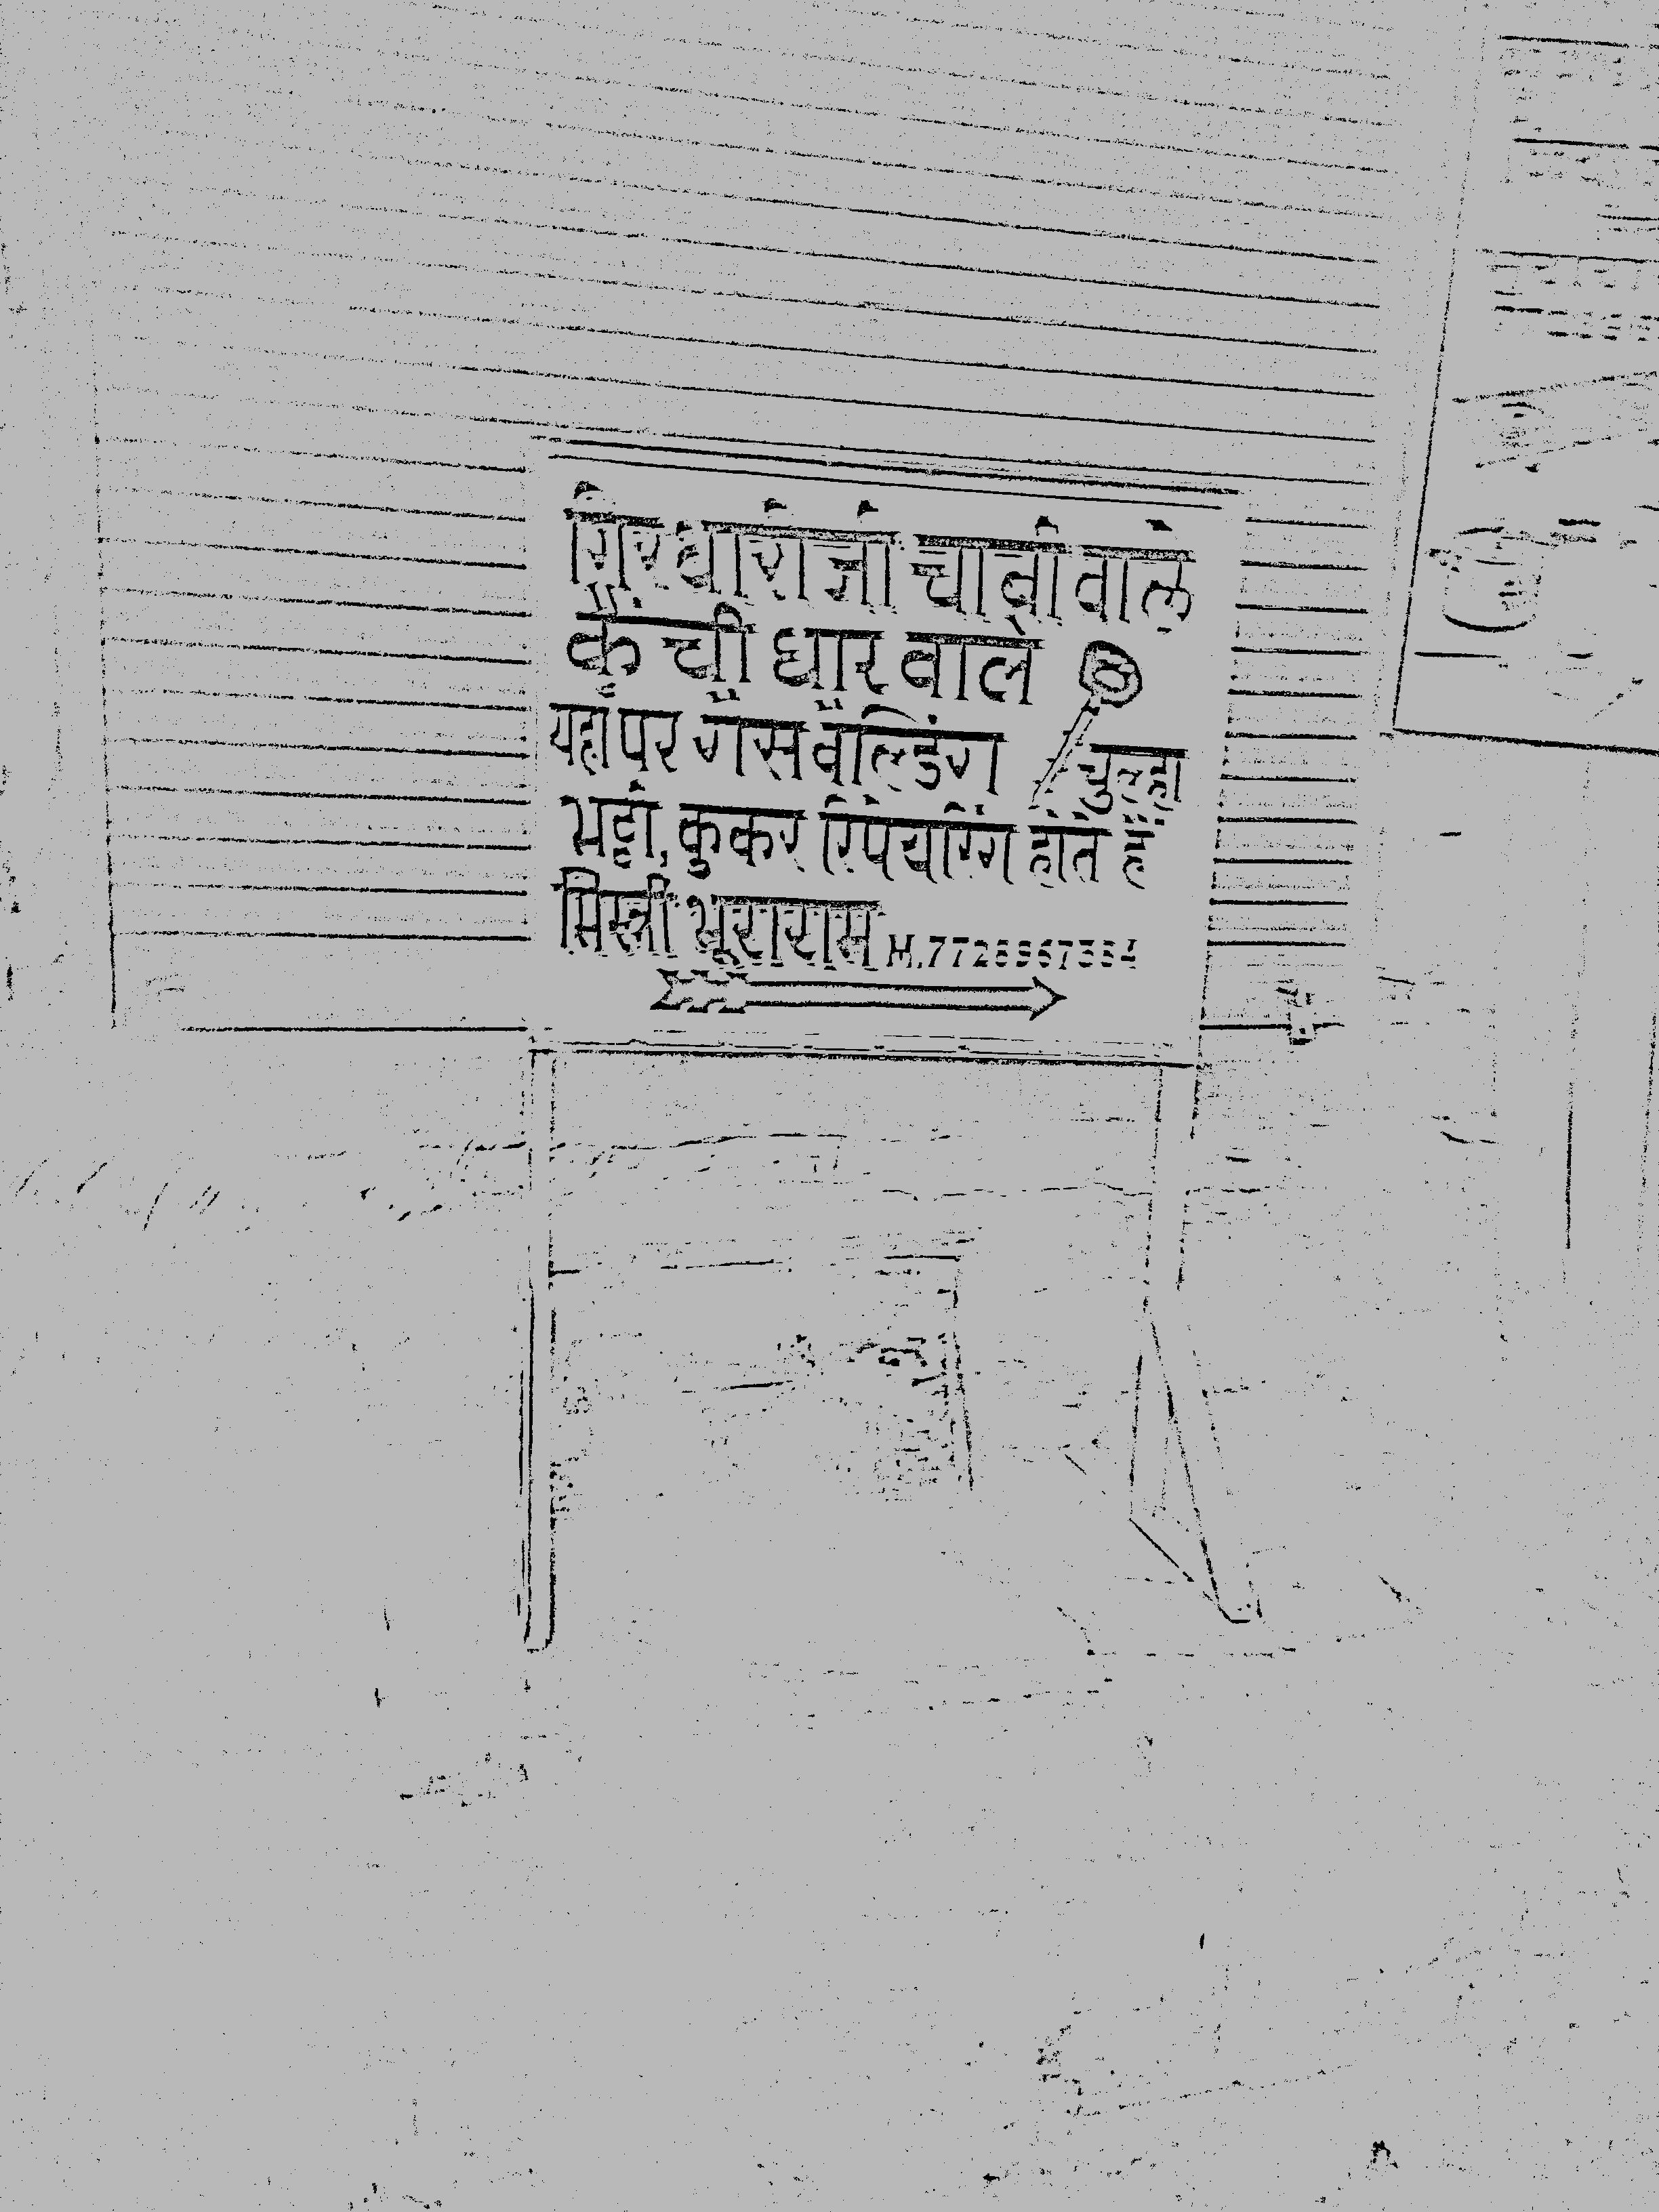 गिरधारी जी चाबी वाले
कैंची धार वाले
यहाँ पर गैस वैल्डिंग चुल्हा
भट्टी, कुकर रिपेयरिंग होते हैं
मिस्त्री भूराराम M.